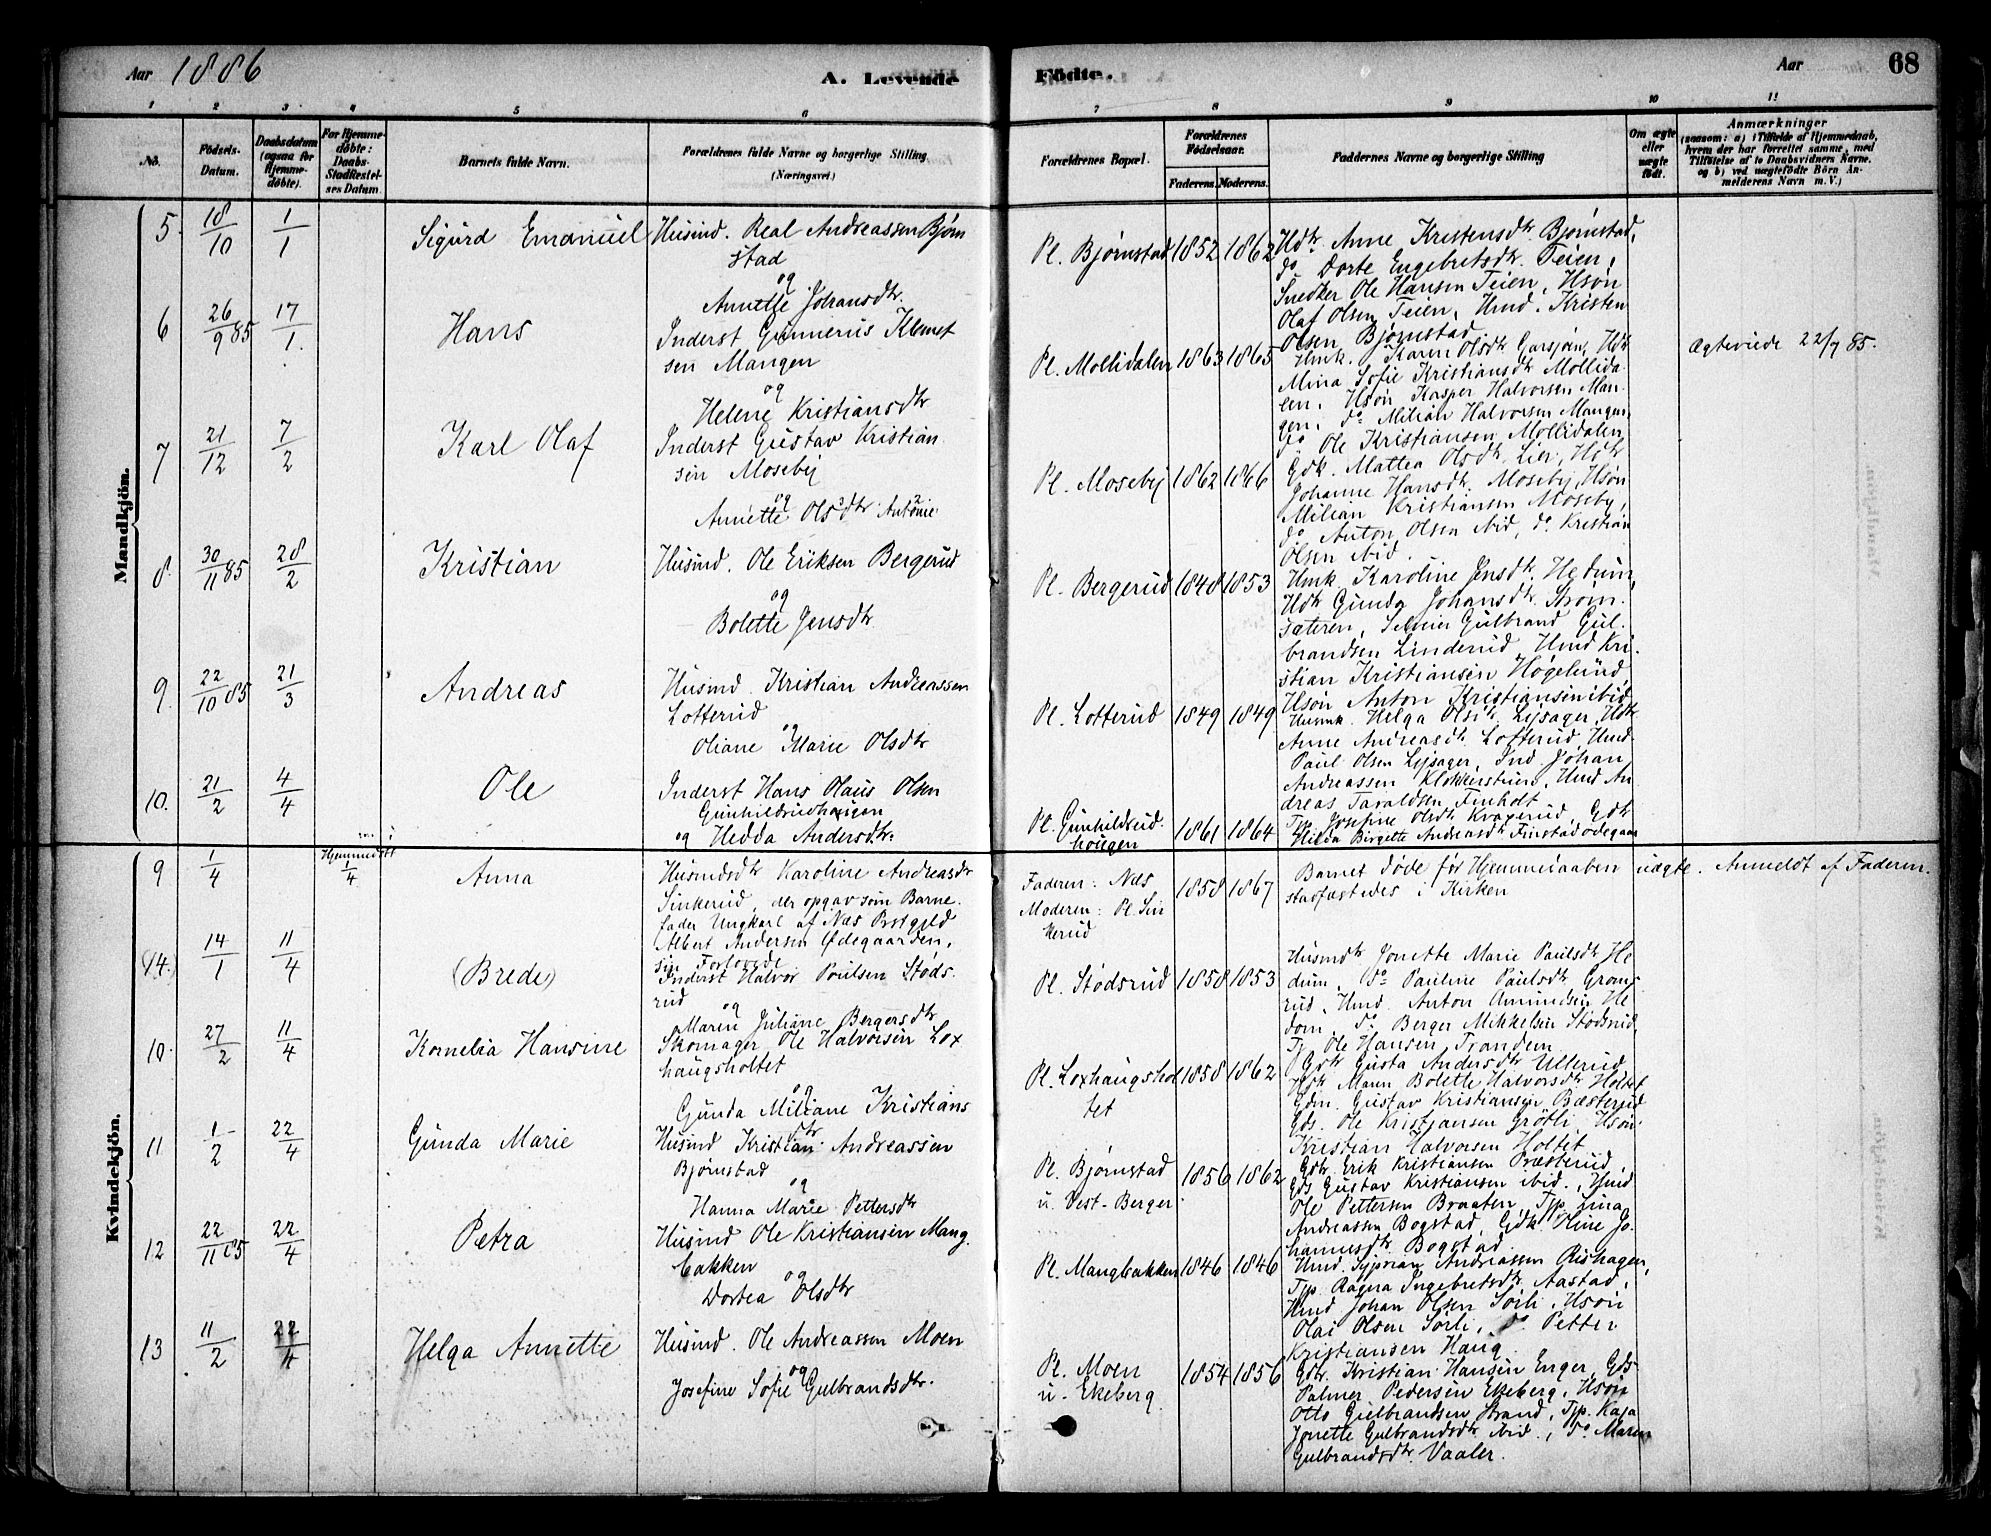 Aar 1886
A. Levende
Födte.
Aar
68
1 2 3 4 5 6 7 8 9 10 11
No.
Födsels-Datum.
Daabsdatum (ogsaa for Hjemme-döbte).
For Hjemme-döbte: Daabs-Stadfæstel-ses Datum.
Barnets fulde Navn.
Forældrenes fulde Navne og borgerlige Stilling.
(Næringsvei)
Forældrenes Bopæl.
Forældrenes Födselsaar.
Faderens. Moderens.
Faddernes Navne og borgerlige Stilling
Om ægte eller uægte födt.
Anmærkninger
(saasom: a) i Tilfælde af Hjemmedaab,
hvem der har forrettet samme, med
Tilföielse af to Daabsvidners Navne.
og b) ved uægtefödte Börn An-
melderens Navn m. V.)
Mandkjön.
5. 18/10 1/1 Sigurd Emanuel
Husmd. Real Andreassen Bjørn
stad
og
Annette Johansdtr.
Pl. Bjørnstad 1852 1862
Hdtr. Anne Kristensdtr. Bjørnstad,
do Dorte Engebretsdtr. Teien,
Snedker Ole Hansen Teien, Hsøn
Olaf Olsen Teien, Hmd. Kristen
Olsen Bjørnstad
6 26/9 85 17/1. Hans
Inderst Gunnerius Klemet
sen Mangen
og
Helene Kristiansdtr
Pl. Mollidalen 1863 1865
Hmk. Karen Olsdtr Garsjøen, Hdtr
Mina Sofie Kristiansdtr Mollida
len, Hsøn Kasper Halvorsen Man-
gen, do Milian Halvorsen Mangen,
do Ole Kristiansen Mollidalen
Ægteviede 22/7 85.
7 21/12 7/2 Karl Olaf
Inderst Gustav Kristian
sen Moseby
og
Annette Olsdtr Antonie
Pl. Moseby 1862 1866
Gdk. Mattea Olsdtr. Lier, Hdtr
Johanne Hansdtr. Moseby, Hsøn
Milian Kristiansen Moseby,
do Anton Olsen ibid, do Kristian
Olsen ibid.
8. 30/11 85 28/2 Kristian
Husmd. Ole Eriksen Bergerud
og
Bolette Jensdtr
Pl. Bergerud 1848 1853
Hmk. Karoline Jensdtr. Hedum,
Hdtr Gunda Johansdtr. Strøm-
sæteren, Selveier Gulbrand Gul-
brandsen Linderud Hmd Kri-
stian Kristiansen Høgelund,
Hsøn Anton Kristiansen ibid
9. 22/10 85 21/3 Andreas
Husmd. Kristian Andreassen
Lotterud
og
Oliane Marie Olsdtr
Pl. Lotterud 1849 1849
Husmk. Helga Olsdtr. Lysager, Hdtr
Anne Andreasdtr. Lotterud, Hmd.
Paul Olsen Lysager, Ind. Johan
Andreassen Klokkerstuen, Hmd An
dreas Taraldsen Finholt
10. 21/2 4/4 Ole
Inderst Hans Olaus Olsen
Gunhildsrudhougen
og Hedda Andersdtr.
Pl. Gunhildsrud
hougen 1861 1864
Tp. Josefine Olsdtr Kvaperud, Gdtr
Hilda Birgitte Andreasdtr Finstadødegaar
Kvindekjön.
9 1/4 Hjemmedøbt 1/4 Anna
Husmdsdtr Karoline Andreasdtr
Sinkerud, der opgav som Barne-
fader Ungkarl af Næs Prstgjeld
Albert Andersen Ødegaarden,
sin Forlovede
Faderen: Næs
Moderen: Pl. Sin
kerud
1858 1867
Barnet døde før Hjemmedaaben
stadfæstedes i Kirken
uægte. Anmeldt af Faderen.
(14.) 14/1 11/4 (Brede)
Inderst Halvor Poulsen Støds-
rud
og
Maren Juliane Bergersdtr
Pl. Stødsrud 1858 1853
Husmdtr Jonette Marie Paulsdtr He
dum, do Pauline Paulsdtr Grøns
rud, Hmd. Anton Amundsen He
dom, do Berger Mikkelsen Stødsrud,
Tj. Ole Hansen Tranden
10. 27/2 11/4 Kornelia Hansine
Skomager Ole Halvorsen Lox
haugsholtet
og
Gunda Miliane Kristians
dtr
Pl. Loxhaugshol
tet 1858 1862
Gdtr Gusta Andersdtr Ullerud
Hdtr Maren Bolette Halvorsdtr. Holtet
Gdm. Gustav Kristiansen Bæsterud
Gds. Ole Kristiansen Grøtli, Hsøn
Kristian Halvorsen Holtet
11 1/2 22/4 Gunda Marie
Husmd Kristian Andreassen
Bjørnstad
og
Hanna Marie Pettersdtr
Pl. Bjørnstad
u. Vest-Berger 1856 1862
Gdbr. Erik Kristiansen Præsterud,
Gds Gustav Kristiansen ibid., Hmd
Ole Pettersen Braaten, Tjp. Lina
Andreassen Bogstad, Gdk Oline Jo-
hannesdtr Bogstad
12 22/11 85 22/4 Petra
Husmd Ole Kristiansen Mang
bakken
og
Dortea Olsdtr
Pl. Mangbakken 1846 1846
Hmd. Syprian Andreassen Rishagen,
Tjp. Ragna Ingebretsdtr. Aastad,
Hmd Johan Olsen Sørli, Hsøn
Olai Olsen Sørli, do Petter
Kristiansen Haug.
13 11/2 22/4 Helga Annette
Husmd. Ole Andreassen Moen
og
Josefine Sofie Gulbrandsdtr.
Pl. Moen
u. Ekeberg 1854 1856
Gdbr. Kristian Hansen Enger, Gds
Palmer Pedersen Ekeberg, Hsøn
Otto Gulbrandsen Strand, Tjp. Kaja
Jonette Gulbrandsdtr ibid., do Maren
Gulbrandsdtr. Vaaler.